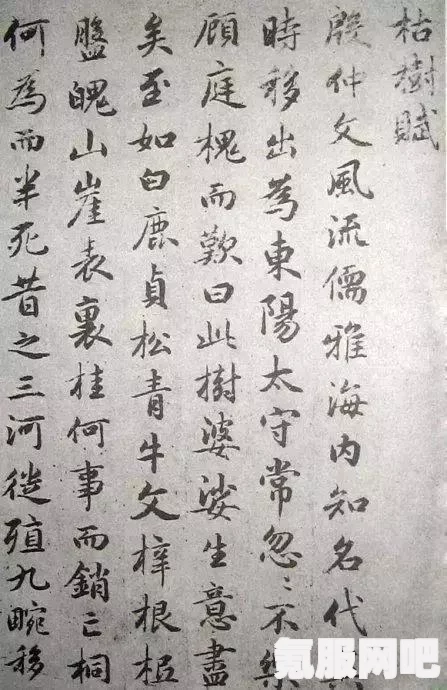 枯樹賦
殷仲文風流儒雅海内知名代
時移出為東陽太守常忽〻不樂
顧庭槐而歎曰此樹婆娑生意盡
矣至如白鹿貞松青牛文梓根柢
盤魄山崖表裏桂何事而銷亡桐
何為而半死昔之三河徙殖九畹移
氪服网吧